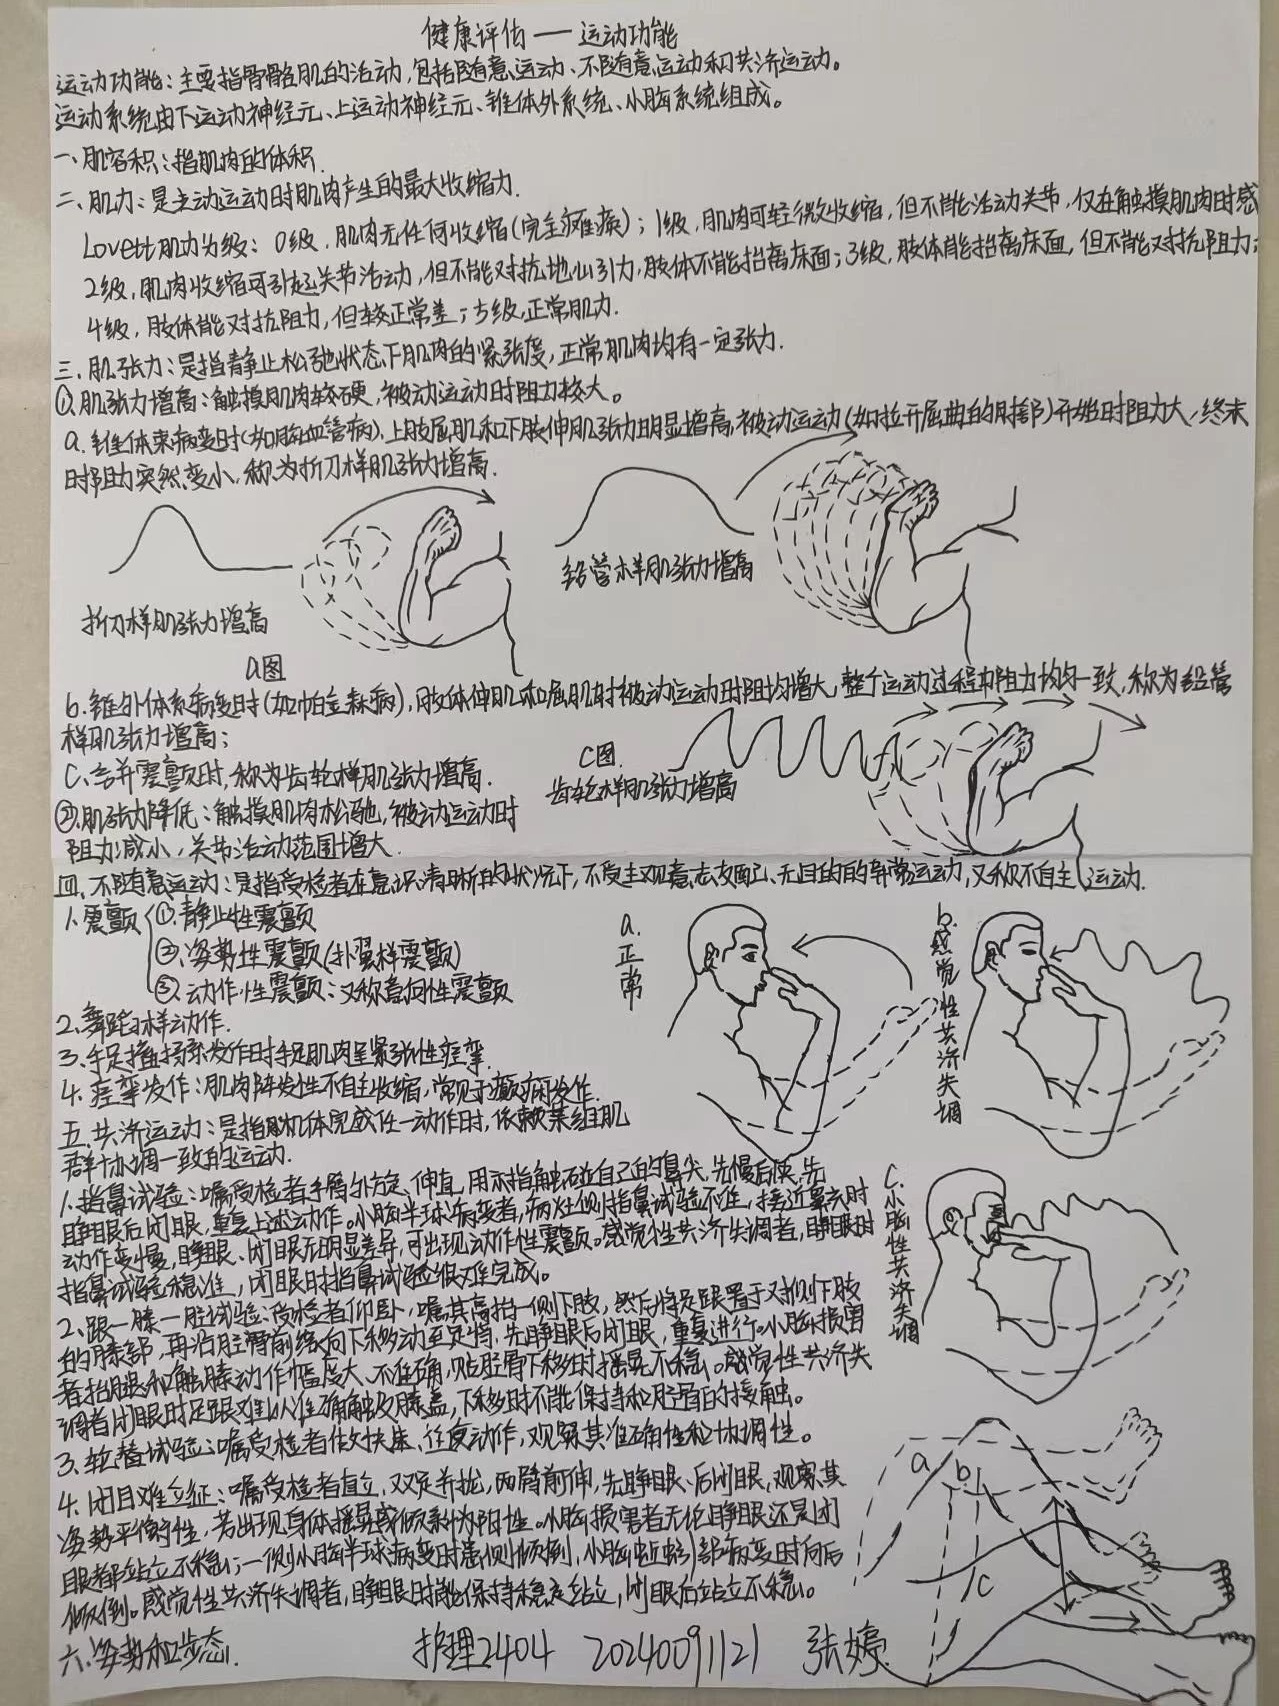 健康评估 — 运动功能
运动功能：主要指骨骼肌的活动，包括随意运动、不随意运动和共济运动。
运动系统由下运动神经元、上运动神经元、锥体外系统、小脑系统组成。
一、肌容积：指肌肉的体积.
二、肌力：是主动运动时肌肉产生的最大收缩力.
Lovett肌力分级：0级，肌肉无任何收缩(完全瘫痪)；1级，肌肉可轻微收缩，但不能活动关节，仅在触摸肌肉时感
2级，肌肉收缩可引起关节活动，但不能对抗地心引力，肢体不能抬离床面；3级，肢体能抬离床面，但不能对抗阻力；
4级，肢体能对抗阻力，但较正常差；5级，正常肌力.
三、肌张力：是指静止松弛状态下肌肉的紧张度，正常肌肉均有一定张力.
①肌张力增高：触摸肌肉较硬，被动运动时阻力较大。
a.锥体束病变时(如脑血管病)，上肢屈肌和下肢伸肌张力明显增高，被动运动(如拉开屈曲的肘部)开始时阻力大，终末
时阻力突然变小，称为折刀样肌张力增高.
铅管样肌张力增高
折刀样肌张力增高
a图
b.锥外体系病变时(如帕金森病)，肢体伸肌和屈肌时被动运动时阻均增大，整个运动过程中阻力均匀一致，称为铅管
样肌张力增高；
C.合并震颤时，称为齿轮样肌张力增高.
C图.
齿轮样肌张力增高
②肌张力降低：触摸肌肉松弛，被动运动时
阻力减小，关节活动范围增大.
四、不随意运动：是指受检者在意识清晰的状况下，不受主观意志支配、无目的的异常运动，又称不自主运动.
1.震颤 ①.静止性震颤
②.姿势性震颤(扑翼样震颤)
③.动作性震颤：又称意向性震颤
2.舞蹈样动作.
3.手足搐搦发作时手足肌肉呈紧张性痉挛.
4.痉挛发作：肌肉阵发性不自主收缩，常见于癫痫发作.
a.正常
b.感觉性共济失调
五.共济运动：是指机体完成任一动作时，依赖某组肌
群协调一致的运动.
1.指鼻试验：嘱受检者手臂外旋、伸直，用示指触碰自己的鼻尖，先慢后快，先
睁眼后闭眼，重复上述动作。小脑半球病变者，病灶侧指鼻试验不准，接近鼻尖时
动作变慢，睁眼、闭眼无明显差异，可出现动作性震颤。感觉性共济失调者，睁眼时
指鼻试验稳准，闭眼时指鼻试验很难完成。
C.小脑性共济失调
2.跟—膝—胫试验：受检者仰卧，嘱其高抬一侧下肢，然后将足跟置于对侧下肢
的膝部，再沿胫骨前缘向下移动至足背，先睁眼后闭眼，重复进行。小脑损害
者抬腿和触膝动作幅度大、不准确，贴胫骨下移时摇晃不稳。感觉性共济失
调者闭眼时足跟难以准确触及膝盖，下移时不能保持和胫骨的接触。
3.轮替试验：嘱受检者做快速、往复动作，观察其准确性和协调性。
4.闭目难立征：嘱受检者直立，双足并拢，两臂前伸，先睁眼、后闭眼，观察其
姿势平衡性，若出现身体摇晃或倾斜为阳性。小脑损害者无论睁眼还是闭
眼都站立不稳；一侧小脑半球病变时患侧倾倒，小脑蚓部病变时向后
倾倒。感觉性共济失调者，睁眼时能保持稳定站立，闭眼后站立不稳。
a
b
c
六.姿势和步态.
护理2404 20240091121 张婷